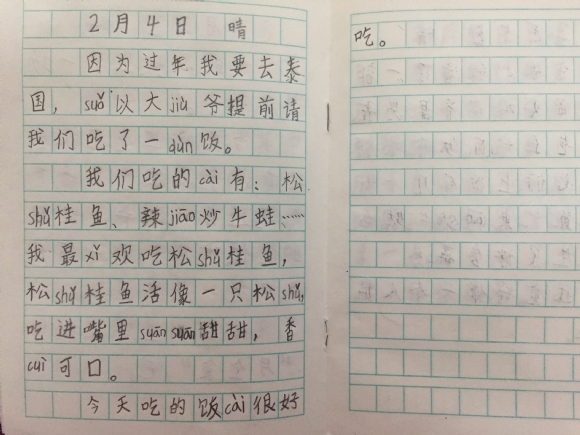 2月4日 晴
因为过年我要去泰
国，suǒ以大jiù爷提前请
我们吃了一dùn饭。
我们吃的cài有：松
shǔ桂鱼、辣jiāo炒牛蛙……
我最xǐ欢吃松shǔ桂鱼，
松shǔ桂鱼活像一只松shǔ，
吃进嘴里suānsuān甜甜，香
cuì可口。
今天吃的饭cài很好
吃。